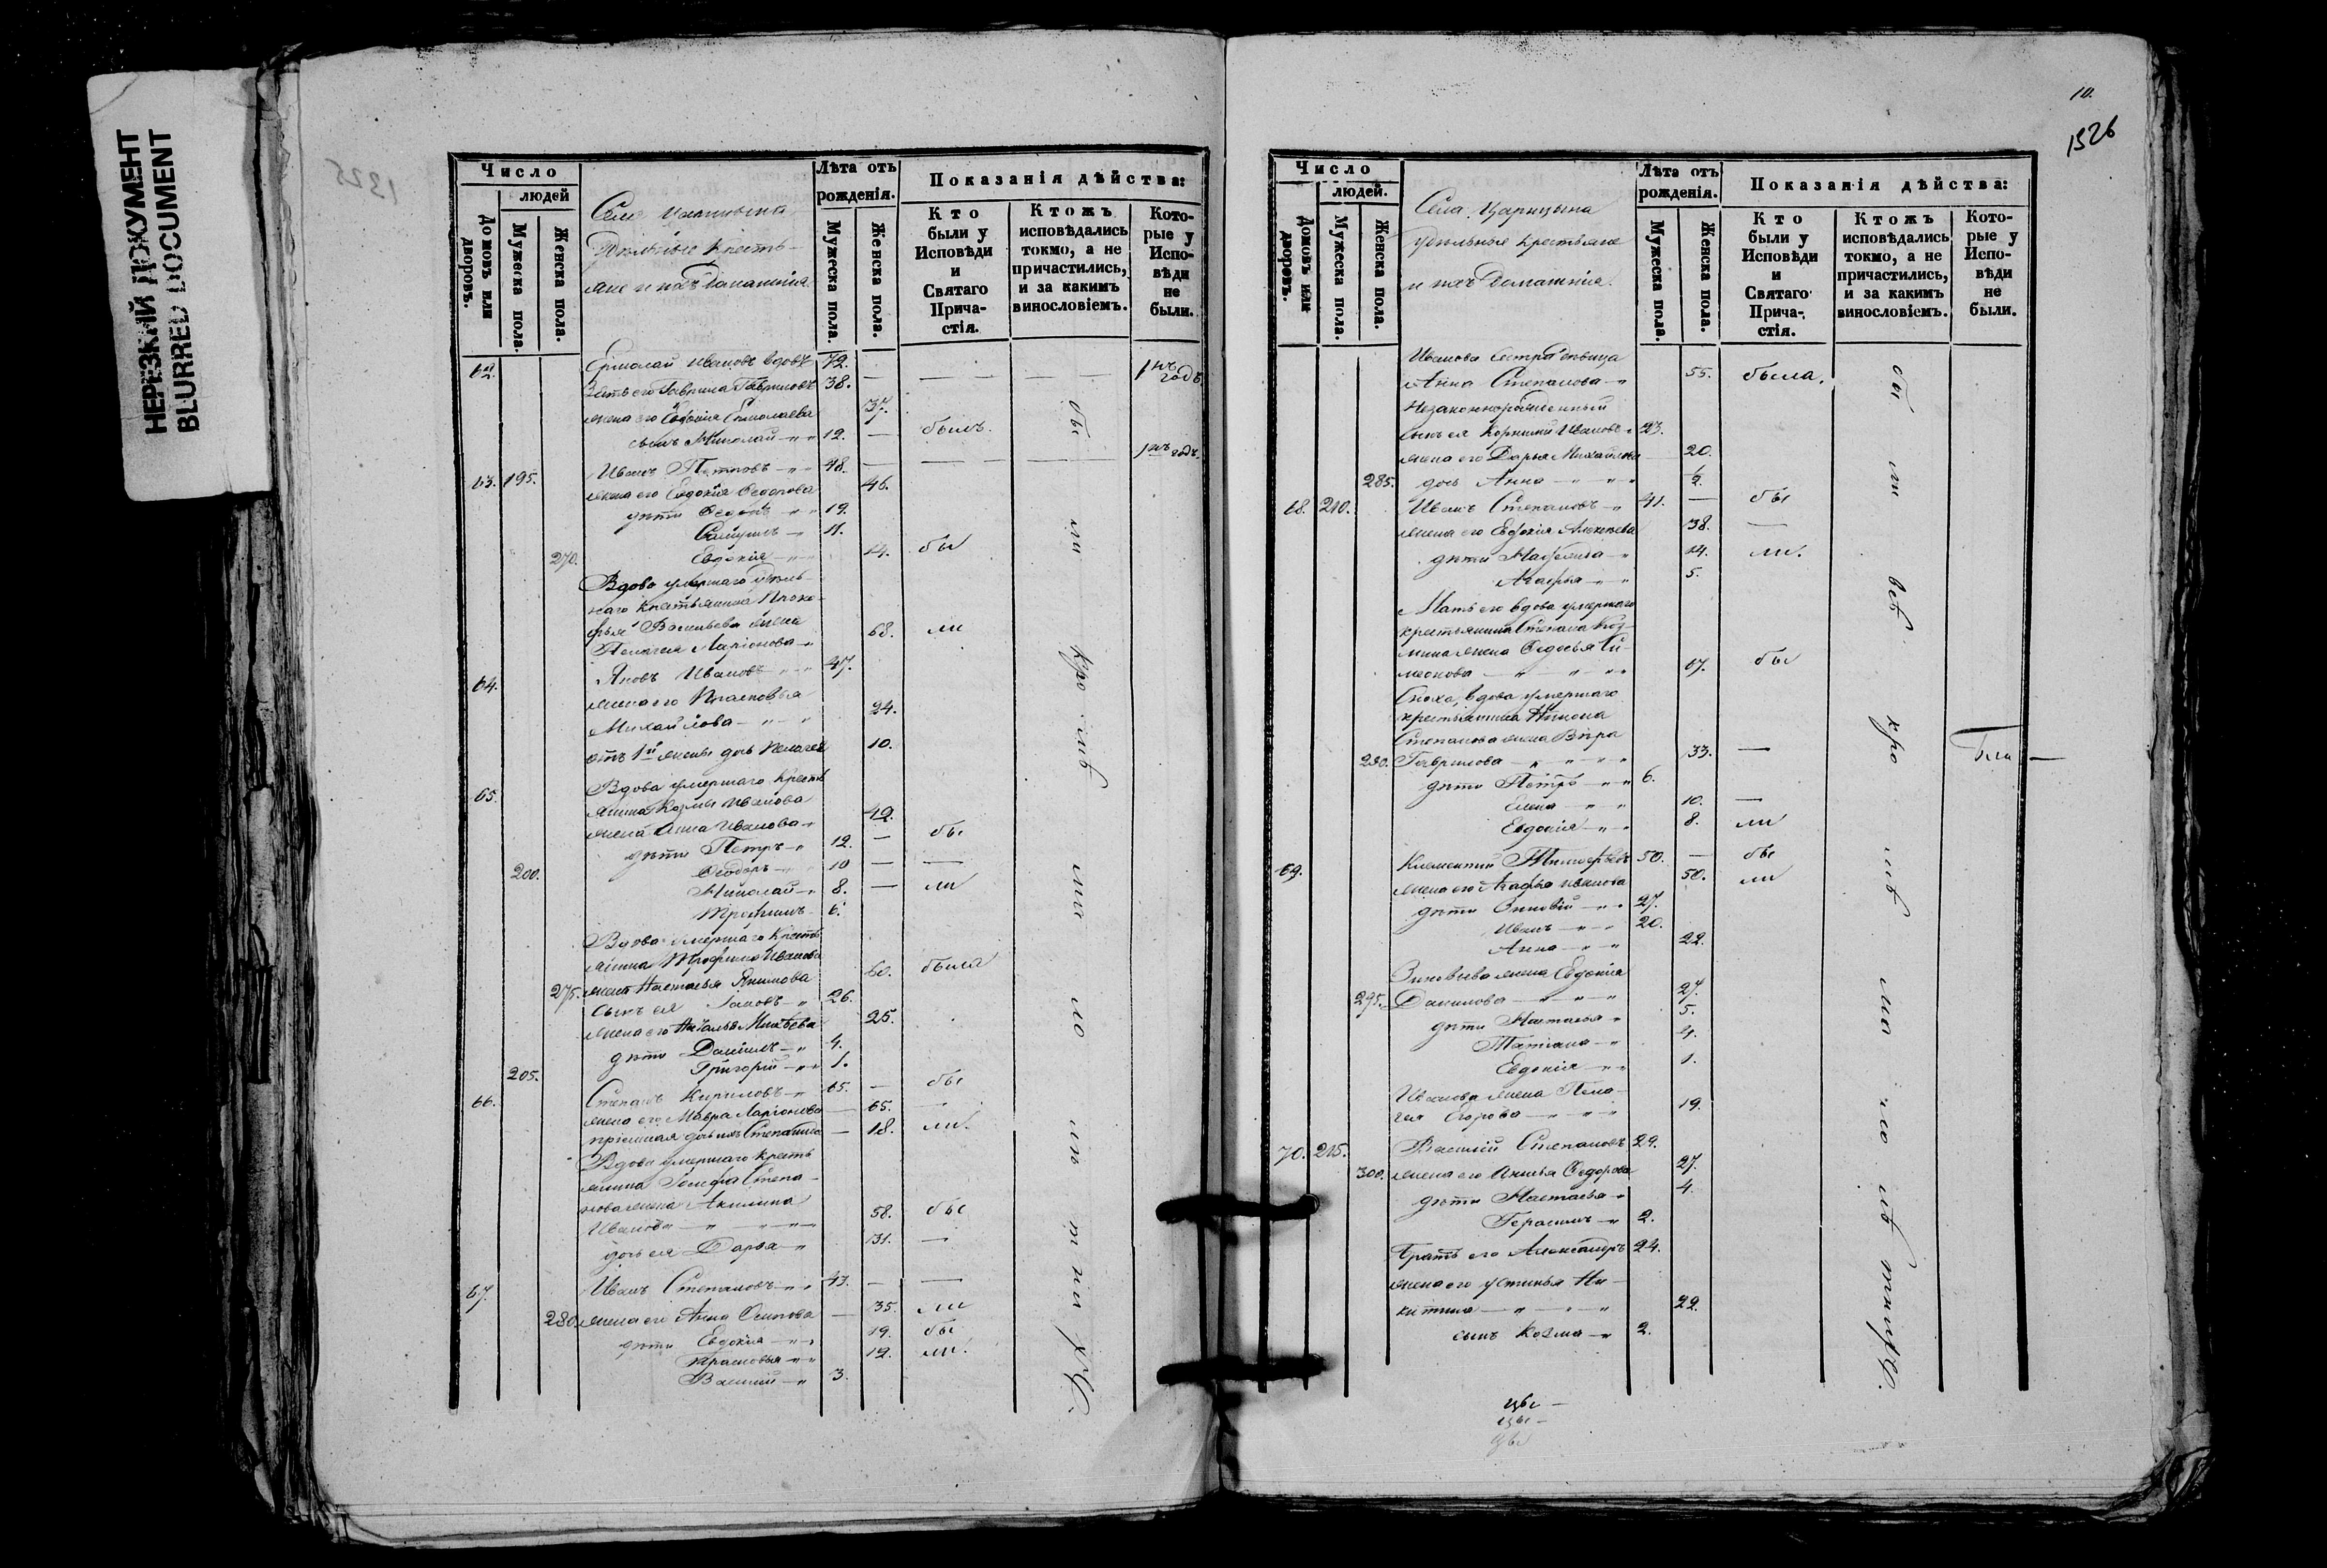 НЕРЕЗКИЙ ДОКУМЕНТ
BLURRED DOCUMENT
1325
Число
людей
Домовъ или дворовъ.
Мужеска пола.
Женска пола.
Села Царицына
Удѣльные кресть-
яне и ихъ домашнія.
Лѣта отъ рожденія.
Мужеска пола.
Женска пола.
Показанія дѣйства:
Кто были у Исповѣди и Святаго Прича-стія.
Ктожъ исповѣдались токмо, а не причастились, и за какимъ винословіемъ.
Кото-рые у Испо-вѣди не были.
62. Ермолай Ивановъ вдовъ 72.
Зять его Гавриилъ Гавриловъ 38. — — — 1нъ годъ
жена его Евдокія Ермолаева 37.
сынъ Николай 12. — былъ.
63. 195. Иванъ Петровъ 48. — — — 1нъ годъ.
жена его Евдокія Ѳедорова 46.
дѣти Ѳедотъ 19.
Самуилъ 11.
270. Евдокія 14. бы
Вдова умершаго удѣль-
наго крестьянина Проко-
фья Васильева жена
Пелагея Ларіонова 68. ли
64. Яковъ Ивановъ 47.
жена его Прасковья
Михайлова 24.
отъ 1й жены дочь Пелагея 10.
65. Вдова умершаго кресть
янина Козмы Иванова
жена Анна Иванова 49.
дѣти Петръ 12. — бы
200. Ѳеодоръ 10 — —
Николай 8. — ли
Трофимъ 6.
Вдова умершаго кресть
янина Трофима Иванова
275. жена Настасья Якимова 60. была
сынъ ея 26.
жена его Наталья Михѣева 25.
дѣти Даніилъ 4.
205. Григорій 1.
66. Степанъ Кириловъ 65. — бы
жена его Мавра Ларіонова — 65. —
пріемная дочь ихъ Степанида — 18. ли.
Вдова умершаго кресть
янина Іосифа Степа-
нова жена Акилина
Иванова 58. бы
дочь ея Дарья 31. —
67. Иванъ Степановъ 43. — —
280. жена его Анна Осипова — 35. ли
дѣти Евдокія 19. бы
Прасковья 12. ли.
Василій 3.
10.
1326
Число
людей.
Домовъ или дворовъ.
Мужеска пола.
Женска пола.
Села Царицына
удѣльные крестьяне
и ихъ домашнія.
Лѣта отъ рожденія.
Мужеска пола.
Женска пола.
Показанія дѣйства:
Кто были у Исповѣди и Святаго Прича-стія.
Ктожъ исповѣдались токмо, а не причастились, и за какимъ винословіемъ.
Кото-рые у Испо-вѣди не были.
Иванова сестра дѣвица
Анна Степанова 55. была.
Незаконнорожденный
сынъ ея Корнилій Ивановъ 23.
жена его Дарья Михайлова 20.
285. дочь Анна
68. 210. Иванъ Степановъ 41. — бы
жена его Евдокія Алексѣева 38. —
дѣти Матрона 14. ли.
Агафья 5.
Мать его вдова умершаго
крестьянина Степана Коз-
мина жена Ѳедосья Си-
меонова 67. бы
Сноха, вдова умершаго
крестьянина
Степанова жена Вѣра
290. Гаврилова 33. —
дѣти Петръ 6.
Елена 10. —
Евдокія 8. ли
69. Климентій Тимофѣевъ 50. — бы
жена его Агафья Иванова 50. ли
дѣти Зиновій 27.
Иванъ 20.
Анна 22.
Зиновьева жена Евдокія
295. Данилова 27.
дѣти Настасья 5.
Татьяна 4.
Евдокія 1.
Иванова жена Пела-
гея Егорова 19.
70. 215. Василій Степановъ 29.
300. жена его Анисья Ѳедорова 27.
дѣти Настасья 4.
Герасимъ 2.
Братъ его Александръ 24.
жена его Устинья Ни-
китина 22.
сынъ Козма 2.